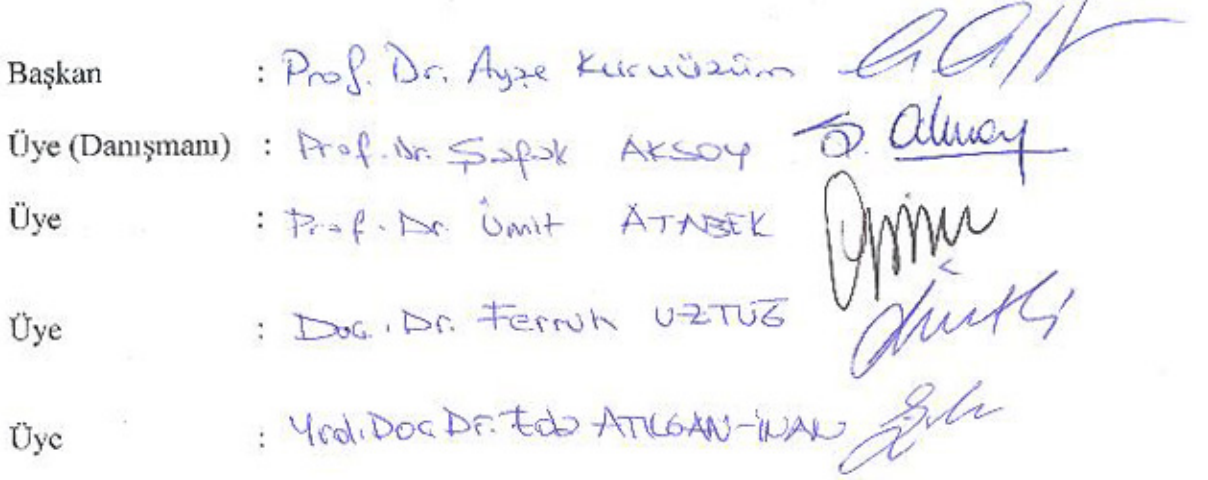 Başkan : Prof. Dr. Ayşe Kuruüzüm
Üye (Danışmanı) : Prof. Dr. Şafak AKSOY
Üye : Prof. Dr. Ümit ATABEK
Üye : Doç. Dr. Ferruh UZTUĞ
Üye : Yrd. Doç Dr. Eda ATILGAN-İNAN